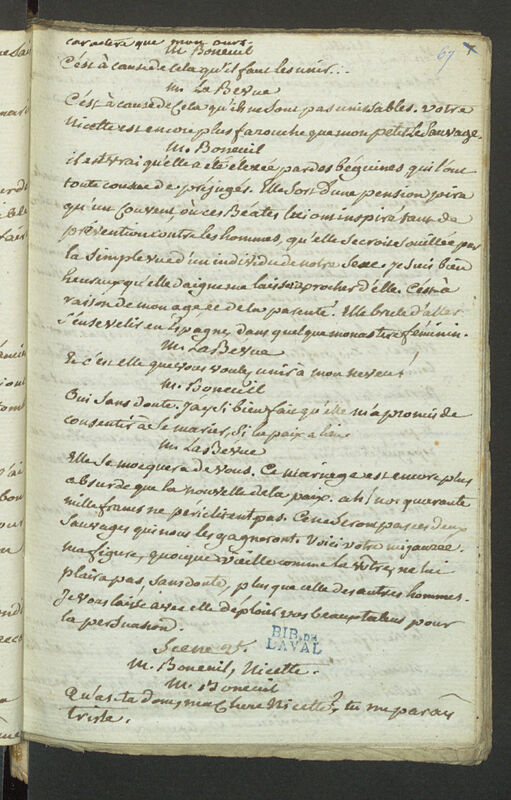 caractère que mon ours.
67
M. Boneuil
C'est à cause de cela qu'il faut les unir...
M. La Bevue
C'est à cause de Cela qu'ils ne sont pas unissables. Votre
Nicette est encore plus farouche que mon petit Le Sauvage.
M. Boneuil
il est vrai qu'elle a été élevée par des béguines qui l'ont
toute cousue de préjugés. Elle sort d'une pension pire
qu'un Couvent où ces Béates lui ont inspiré tant de
prévention contre les hommes, qu'elle se croit souillée par
la simple vue d'un individu de notre Sexe. je suis bien
heureux qu'elle daigne me laisser aprocher d'elle. C'est à
raison de mon age et de la parenté. Elle brule d'aller
s'ensevelir en Espagne, dans quelque monastere féminin.
M. La Bevue
Et c'est elle que vous voulez unir à mon neveu!
M. Boneuil
Oui sans doute. j'ay si bien fait qu'elle m'a promis de
consentir à se marier, si la paix a lieu.
M. La Bevue
Elle se moquera de vous. Ce mariage est encore plus
absurde que la nouvelle de la paix. ah! nos quarante
mille francs ne periclitent pas. Ce ne seront pas ces deux
Sauvages qui nous les gagneront. Voici votre
ma figure, quoique vieille comme la votre, ne lui
plaira pas, sans doute, plus que celle des autres hommes.
Je vous laisse avec elle déploier vos beaux talens pour
la persuasion.
Scene
BIB. DE
LAVAL
M. Boneuil, Nicette.
M. Boneuil
Qu'as-tu donc, ma Chere Nicette? tu me parais
triste.